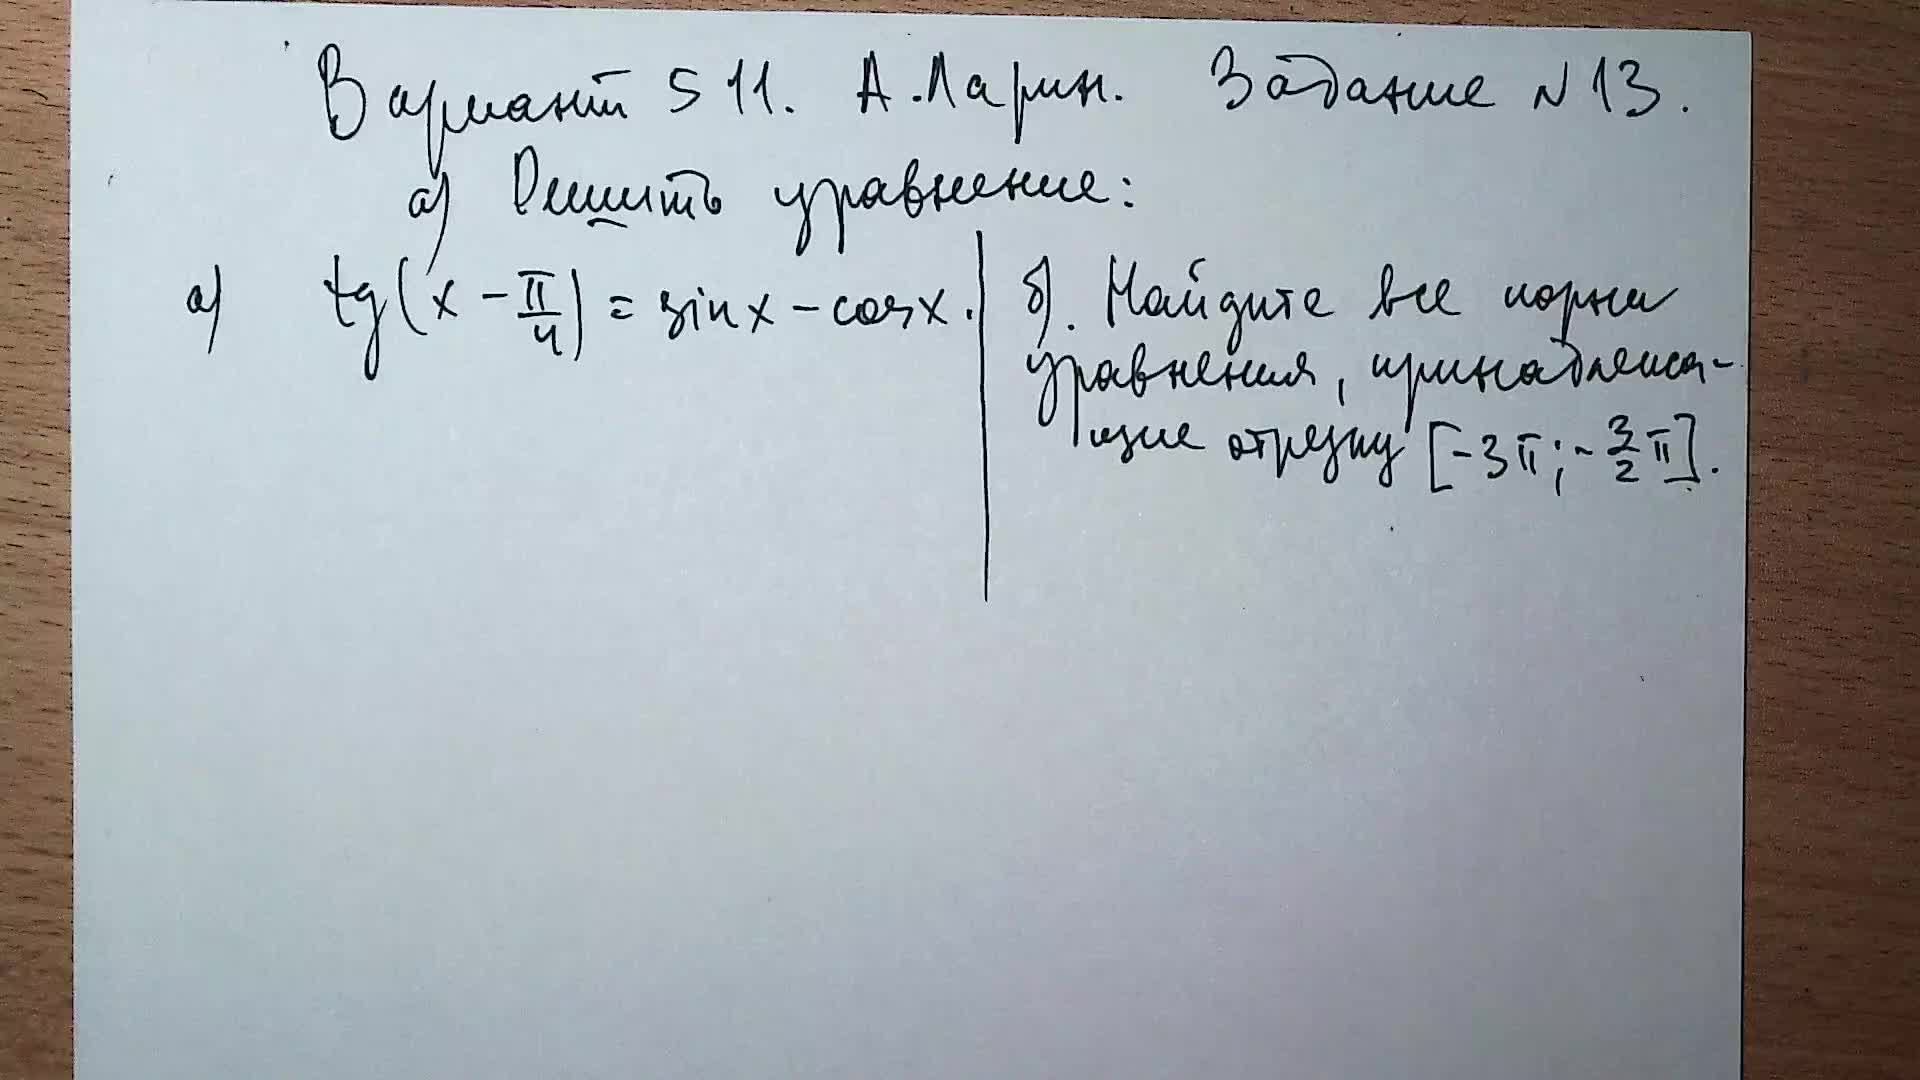 Вариант 511. А. Ларин. Задание №13.
а) Решить уравнение:
а) tg(x - π/4) = sinx - cosx.
б). Найдите все корни
уравнения, принадлежа-
щие отрезку [-3π; -3/2 π].